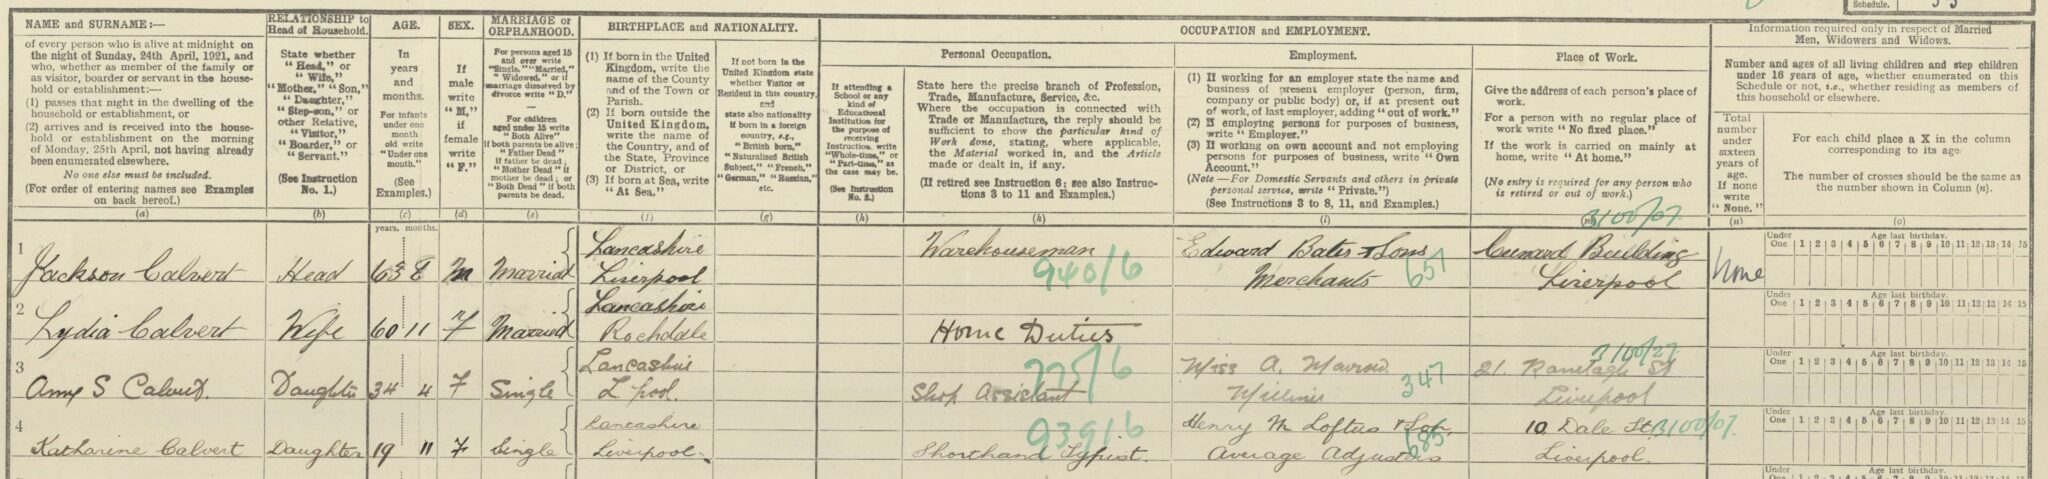 Schedule.
NAME and SURNAME:—
of every person who is alive at midnight on
the night of Sunday, 24th April, 1921, and
who, whether as member of the family or
as visitor, boarder or servant in the house-
hold or establishment:—
(1) passes that night in the dwelling of the
household or establishment, or
(2) arrives and is received into the house-
hold or establishment on the morning
of Monday, 25th April, not having already
been enumerated elsewhere.
No one else must be included.
(For order of entering names see Examples
on back hereof.)
(a)
RELATIONSHIP to
Head of Household.
State whether
"Head," or
"Wife,"
"Mother," "Son,"
"Daughter,"
"Step-son," or
other Relative,
"Visitor,"
"Boarder," or
"Servant."
(See Instruction
No. 1.)
(b)
AGE.
In
years
and
months.
For infants
under one
month
old write
"Under one
month."
(See
Examples.)
(c)
SEX.
If
male
write
"M,"
if
female
write
"F."
(d)
MARRIAGE or
ORPHANHOOD.
For persons aged 15
and over write
"Single," "Married,"
"Widowed," or if
marriage dissolved by
divorce write "D."
For children
aged under 15 write
"Both Alive"
if both parents be alive;
"Father Dead"
if father be dead;
"Mother Dead" if
mother be dead; or
"Both Dead" if both
parents be dead.
(e)
BIRTHPLACE and NATIONALITY.
(1) If born in the United
Kingdom, write the
name of the County
and of the Town or
Parish.
(2) If born outside the
United Kingdom,
write the name of
the Country, and of
the State, Province
or District, or
(3) If born at Sea, write
"At Sea."
(f)
If not born in the
United Kingdom state
whether Visitor or
Resident in this country,
and
state also nationality
if born in a foreign
country, e.g.,
"British born,"
"Naturalised British
Subject," "French,"
"German," "Russian,"
etc.
(g)
OCCUPATION and EMPLOYMENT.
If attending a
School or any
kind of
Educational
Institution for
the purpose of
receiving
Instruction, write
"Whole-time," or
"Part-time," as
the case may be.
(See Instruction
No. 2.)
(h)
Personal Occupation.
State here the precise branch of Profession,
Trade, Manufacture, Service, &c.
Where the occupation is connected with
Trade or Manufacture, the reply should be
sufficient to show the particular kind of
Work done, stating, where applicable,
the Material worked in, and the Article
made or dealt in, if any.
(If retired see Instruction 6; see also Instruc-
tions 3 to 11 and Examples.)
(k)
Employment.
(1) If working for an employer state the name and
business of present employer (person, firm,
company or public body) or, if at present out
of work, of last employer, adding "out of work."
(2) If employing persons for purposes of business,
write "Employer."
(3) If working on own account and not employing
persons for purposes of business, write "Own
Account."
(Note—For Domestic Servants and others in private
personal service, write "Private.")
(See Instructions 3 to 8, 11, and Examples.)
(l)
Place of Work.
Give the address of each person's place of
work.
For a person with no regular place of
work write "No fixed place."
If the work is carried on mainly at
home, write "At home."
(No entry is required for any person who
is retired or out of work.)
(m)
Information required only in respect of Married
Men, Widowers and Widows.
Number and ages of all living children and step children
under 16 years of age, whether enumerated on this
Schedule or not, i.e., whether residing as members of
this household or elsewhere.
Total
number
under
sixteen
years of
age.
If none
write
"None."
(n)
For each child place a X in the column
corresponding to its age
The number of crosses should be the same as
the number shown in Column (n).
(o)
years. months.
3100/07
1
Jackson Calvert Head 63 8 M Married Lancashire
Liverpool
Warehouseman
940/6
Edward Bates & Sons
Merchants 657
Cunard Building
Liverpool
None
Under One Age last birthday.
1 2 3 4 5 6 7 8 9 10 11 12 13 14 15
2
Lydia Calvert Wife 60 11 F Married Lancashire
Rochdale
Home Duties
Under One Age last birthday.
1 2 3 4 5 6 7 8 9 10 11 12 13 14 15
3
Amy S Calvert. Daughter 34 4 F Single Lancashire
L'pool.
775/6
Shop Assistant
Miss A. Marrow
Milliner 347
3100/27
21. Ranelagh St
Liverpool
Under One Age last birthday.
1 2 3 4 5 6 7 8 9 10 11 12 13 14 15
4
Katharine Calvert Daughter 19 11 F Single Lancashire
Liverpool.
939/6
Shorthand Typist.
Henry M Loftus & Son,
Average Adjusters 685
10, Dale St. 3100/07
Liverpool.
Under One Age last birthday.
1 2 3 4 5 6 7 8 9 10 11 12 13 14 15
Under
One Age last birthday.